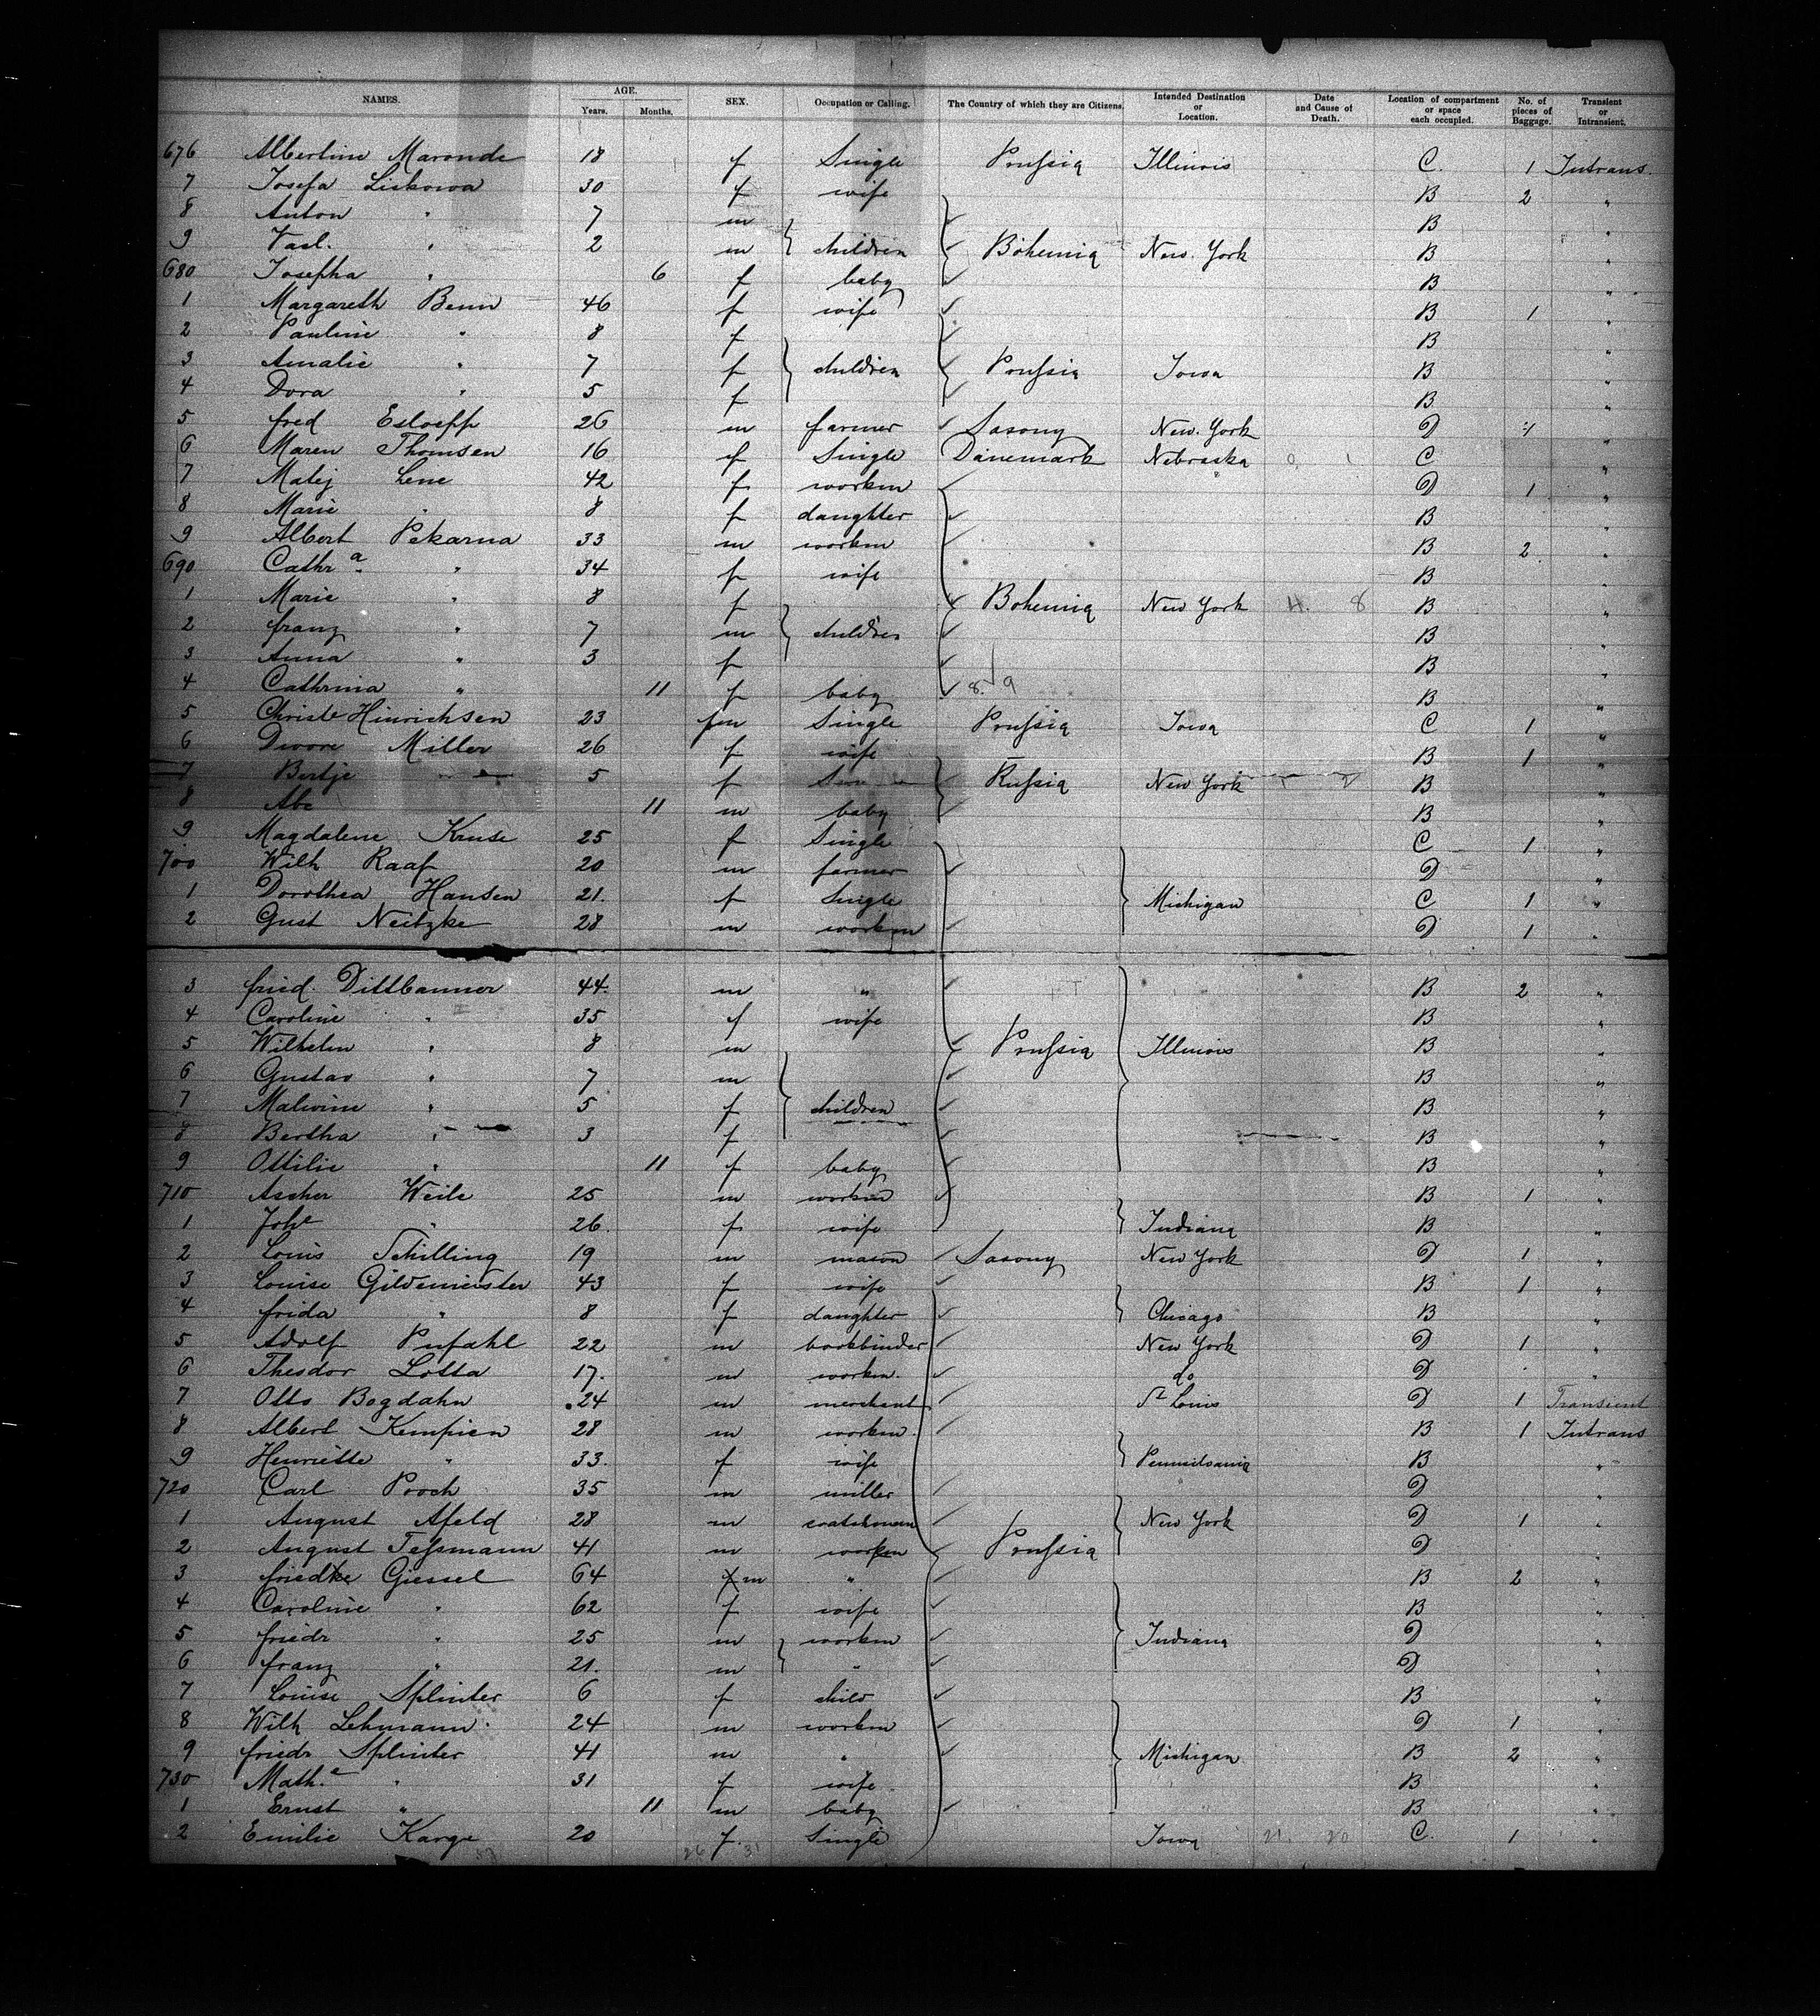 NAMES. AGE. Years. Months. SEX. Occupation or Calling. The Country of which they are Citizens. Intended Destination or Location. Date and Cause of Death. Location of compartment or space each occupied. No. of pieces of Baggage. Transient or Intransient.
676 Albertine Maronde 18 f Single Prussia Illinois C. 1 Intrans.
7 Josefa Liskowa 30 f wife B 2 "
8 Anton " 7 m B "
9 Vacl. " 2 m children Bohemia New York B "
680 Josepha " 6 f baby B "
1 Margareth Benn 46 f wife B 1 "
2 Pauline " 8 f B "
3 Amalie " 7 f children Prussia Iowa B "
4 Dora " 5 f B "
5 fred 26 m farmer Saxony New York D 1 "
6 Maren Thomsen 16 f Single Dänemark Nebraska C "
7 Matej Lene 42 f workm D 1 "
8 Marie " 8 f daughter B "
9 Albert Pekarna 33 m workm B 2 "
690 Cathra " 34 f wife B "
1 Marie " 8 f Bohemia New York B "
2 franz " 7 m children B "
3 Anna " 3 f B "
4 Cathrina " 11 f baby B "
5 Christe Hinrichsen 23 fm Single Prussia Iowa C 1 "
6 Dwore Miller 26 f wife B 1 "
7 Bertje " 5 f Russia New York B "
8 Abe 11 m baby B "
9 Magdalene Kruse 25 f Single C 1 "
700 Wilh Raaf 20 m farmer D "
1 Dorothea Hansen 21. f Single Michigan C 1 "
2 Gust Neitzke 28 m workm D 1 "
3 fried. Dittbanner 44. m " B 2 "
4 Caroline " 35 f wife B "
5 Wilhelm " 8 m Prussia Illinois B "
6 Gustav " 7 m B "
7 Malwine " 5 f children B "
8 Bertha " 3 f B "
9 Ottilie " 11 f baby B "
710 Ascher Weile 25 m workm B 1 "
1 Johe " 26. f wife Indiana B "
2 Louis Schilling 19 m mason Saxony New York D 1 "
3 Louise Gildemeister 43 f wife B 1 "
4 frida " 8 f daughter Chicago B "
5 Adolf Pufahl 22 m bookbinder New York D 1 "
6 Theodor Lotta 17. m workm. do D "
7 Otto Bogdahn 24 m merchant St Louis D 1 Transient
8 Albert Kempien 28 m workm. B 1 Intrans
9 Henriette " 33. f wife Pennsilvania B "
720 Carl Pooch 35 m miller D "
1 August Afeld 28 m New York D 1 "
2 August Tessmann 41 m workm Prussia D "
3 Giessel 64 m " B 2 "
4 Caroline " 62 f wife B "
5 friedr " 25 m workm Indiana D "
6 franz " 21. m " D "
7 Louise Splinter 6 f child B "
8 Wilh Lehmann. 24 m workm D 1 "
9 friedr Splinter 41 m " Michigan B 2 "
730 Mathe " 31 f wife B "
1 Ernst " 11 m baby B "
2 Emilie Karge 20 f. Single Iowa C. 1 "